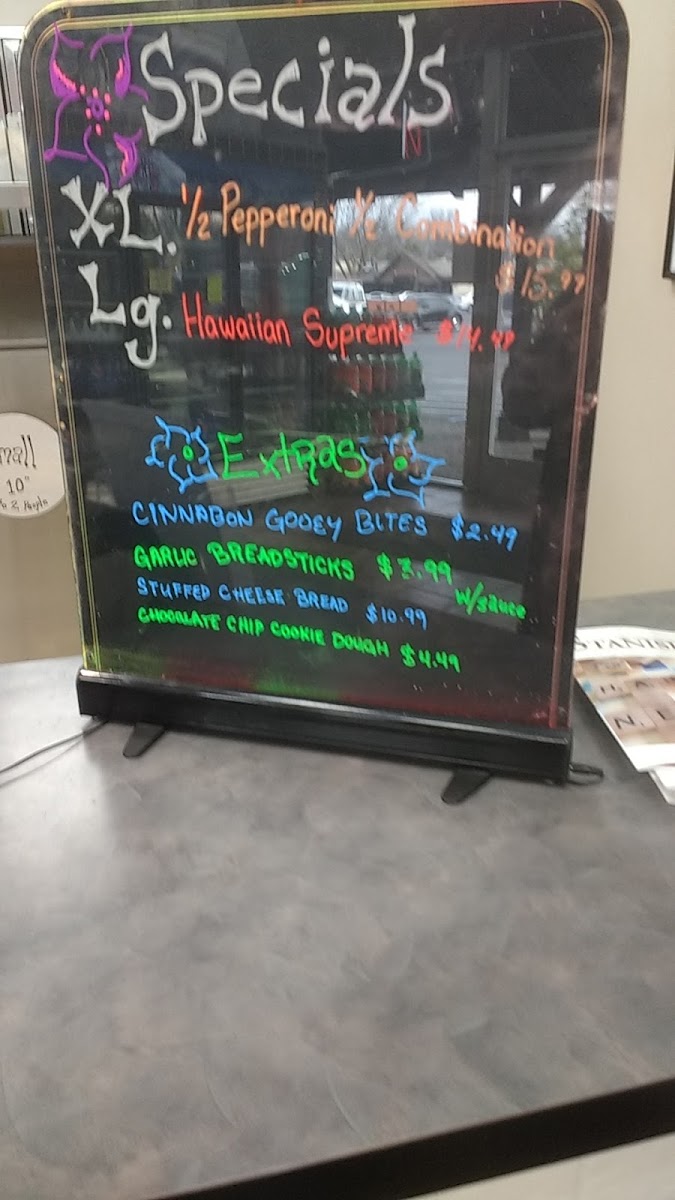 Specials
XL. 1/2 Pepperoni 1/2 Combination
$15.99
Lg. Hawaiian Supreme $14.49
Extras
CINNABON GOOEY BITES $2.49
GARLIC BREADSTICKS $3.99
w/sauce
STUFFED CHEESE BREAD $10.99
CHOCOLATE CHIP COOKIE DOUGH $4.49
mall
10"